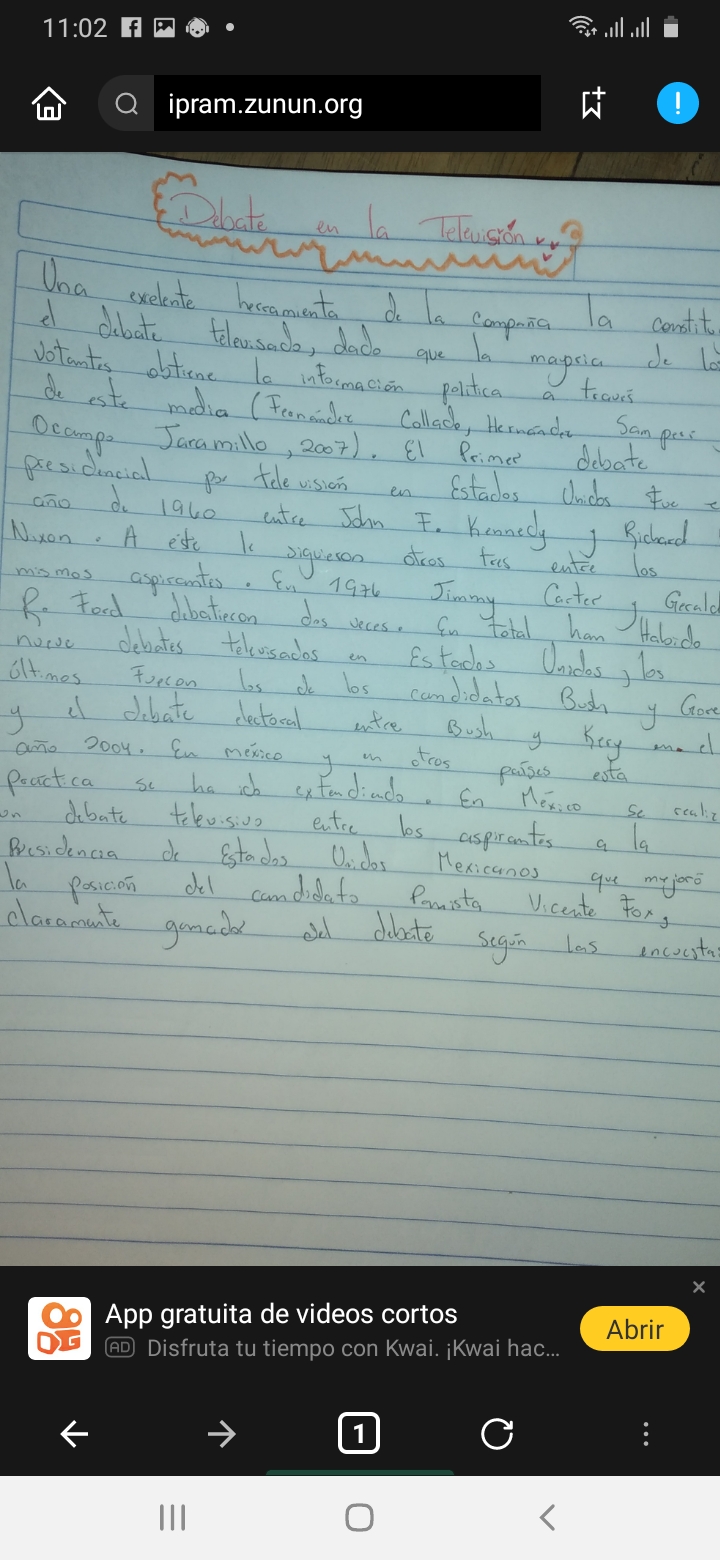 11:02
ipram.zunun.org
Debate en la Televisión
Una exelente herramienta de la compaña la constitu
el debate televisado, dado que la mayoria de lo
votantes obtiene la información politica a traves
de este media (Fernández Collado, Hernández Samperi
Ocampo Jaramillo, 2007). El Primer debate
presidencial por television en Estados Unidos fue e
año de 1960 entre John F. Kennedy y Richard
Nixon. A este le siguieron otros tres entre los
mismos aspirantes. En 1976 Jimmy Carter y Gerald
R. Ford debatieron dos veces. En total han Habido
nueve debates televisados en Estados Unidos, los
últimos Fueron los de los candidatos Bush y Gore
y el debate electoral entre Bush y Kery en el
año 2004. En méxico y en otros países esta
practica se ha ido extendiendo. En México se realiz
un debate televisivo entre los aspirantes a la
Presidencia de Estados Unidos Mexicanos que mejoró
la posición del candidato Panista Vicente Fox,
claramente ganador del debate según las encuesta
App gratuita de videos cortos
AD Disfruta tu tiempo con Kwai. ¡Kwai hac...
Abrir
1